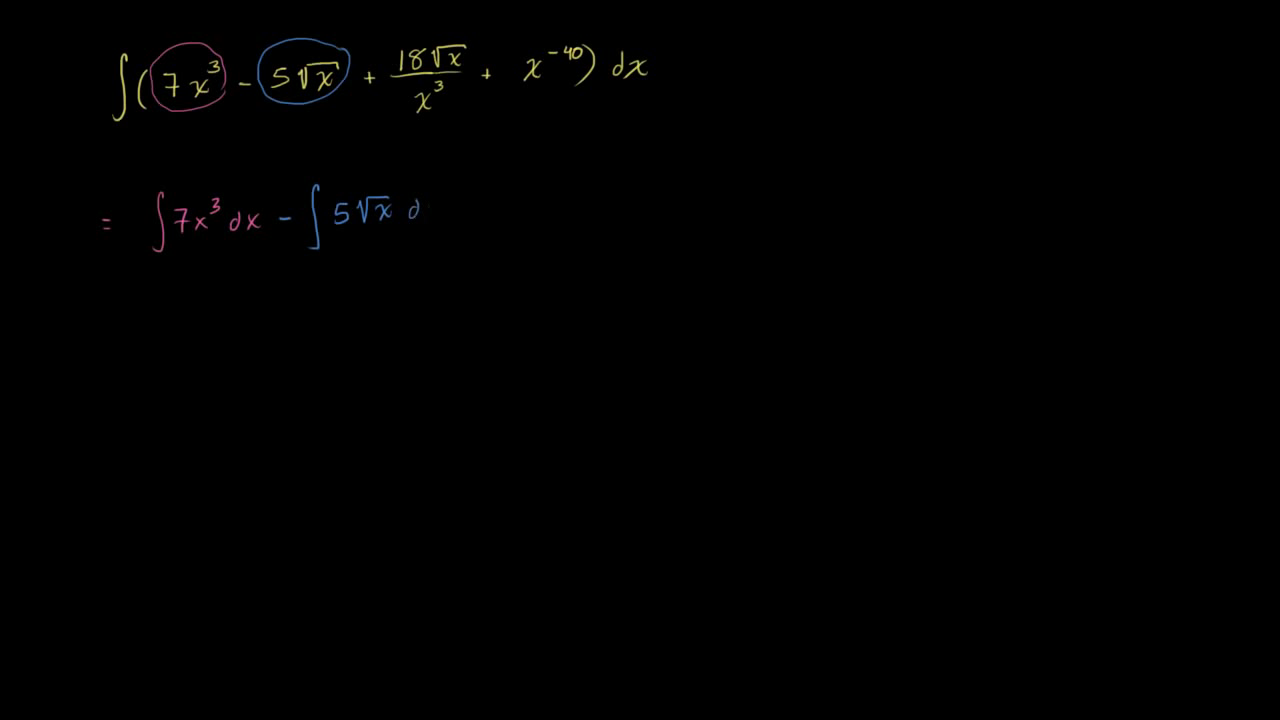 ∫(7x³ - 5√x + 18√x/x³ + x⁻⁴⁰) dx
= ∫7x³ dx - ∫5√x d